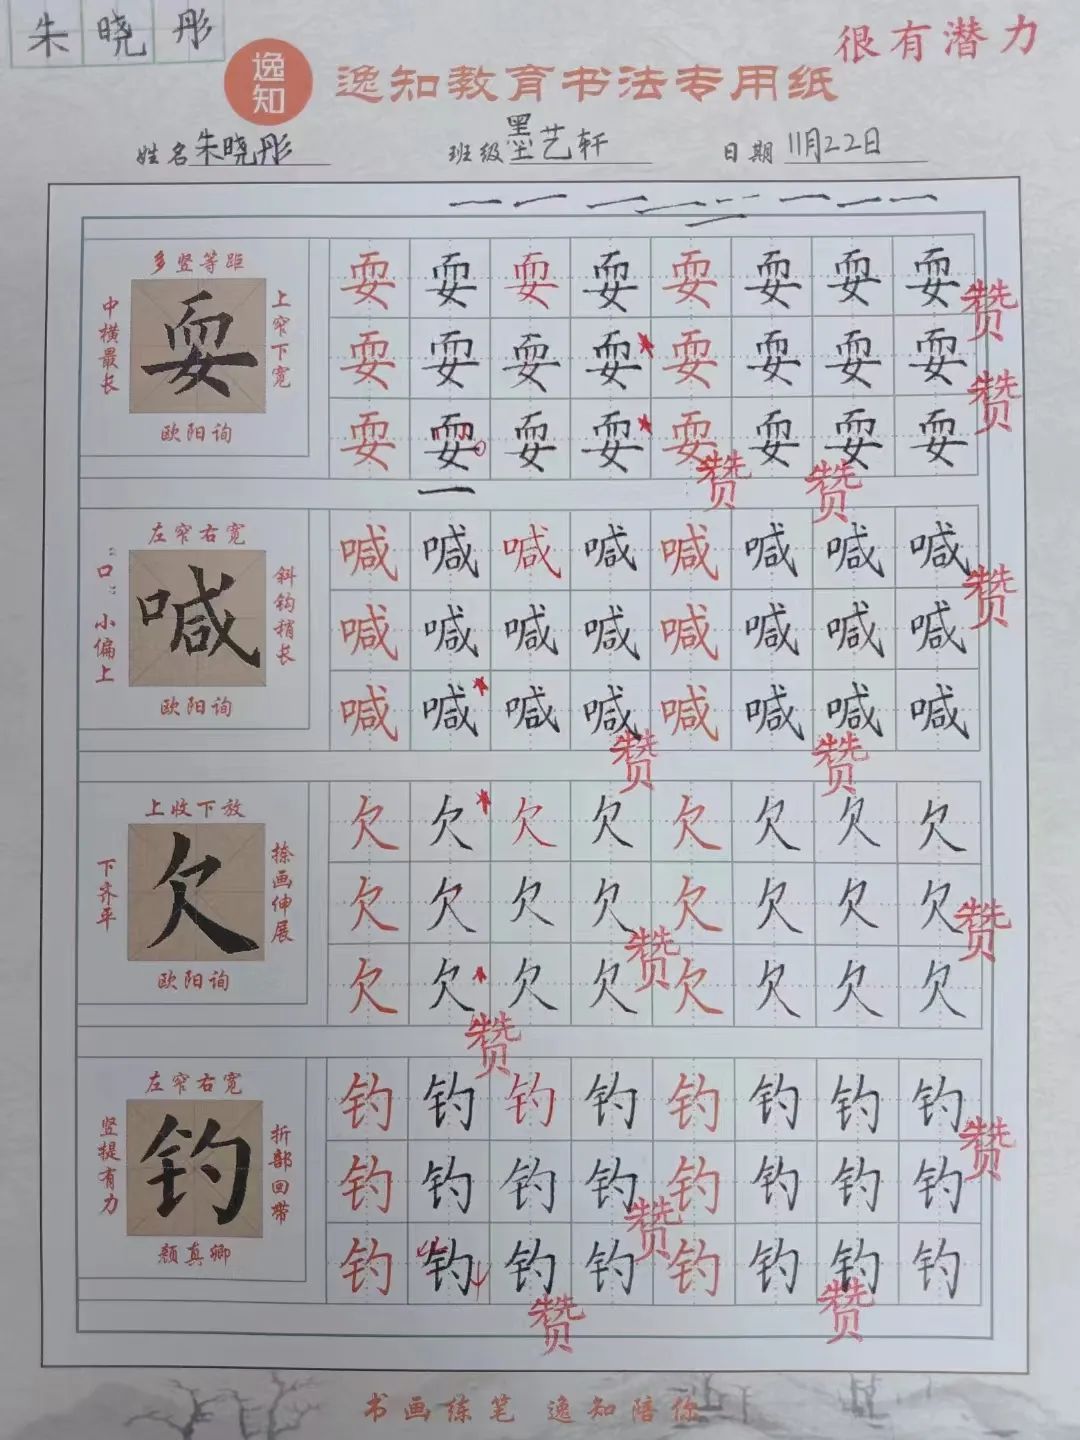 朱晓彤
很有潜力
逸知
逸知教育书法专用纸
姓名 朱晓彤 班级 墨艺轩 日期 11月22日
多竖等距
中横最长
耍
上窄下宽
欧阳询
耍 耍 耍 耍 耍 耍 耍 耍 赞
耍 耍 耍 耍 耍 耍 耍 耍 赞
耍 耍 耍 耍 耍 耍 耍 耍
赞 赞
左窄右宽
“口”小偏上
喊
斜钩稍长
欧阳询
喊 喊 喊 喊 喊 喊 喊 喊 赞
喊 喊 喊 喊 喊 喊 喊 喊
喊 喊 喊 喊 喊 喊 喊 喊
赞 赞
上收下放
下齐平
欠
捺画伸展
欧阳询
欠 欠 欠 欠 欠 欠 欠 欠
欠 欠 欠 欠 欠 欠 欠 欠 赞
欠 欠 欠 欠 赞 欠 欠 欠 欠
赞
左窄右宽
竖提有力
钓
折部回带
颜真卿
钓 钓 钓 钓 钓 钓 钓 钓 赞
钓 钓 钓 钓 钓 钓 钓 钓
钓 钓 钓 钓 赞 钓 钓 钓 钓
赞 赞
书画练笔 逸知陪你